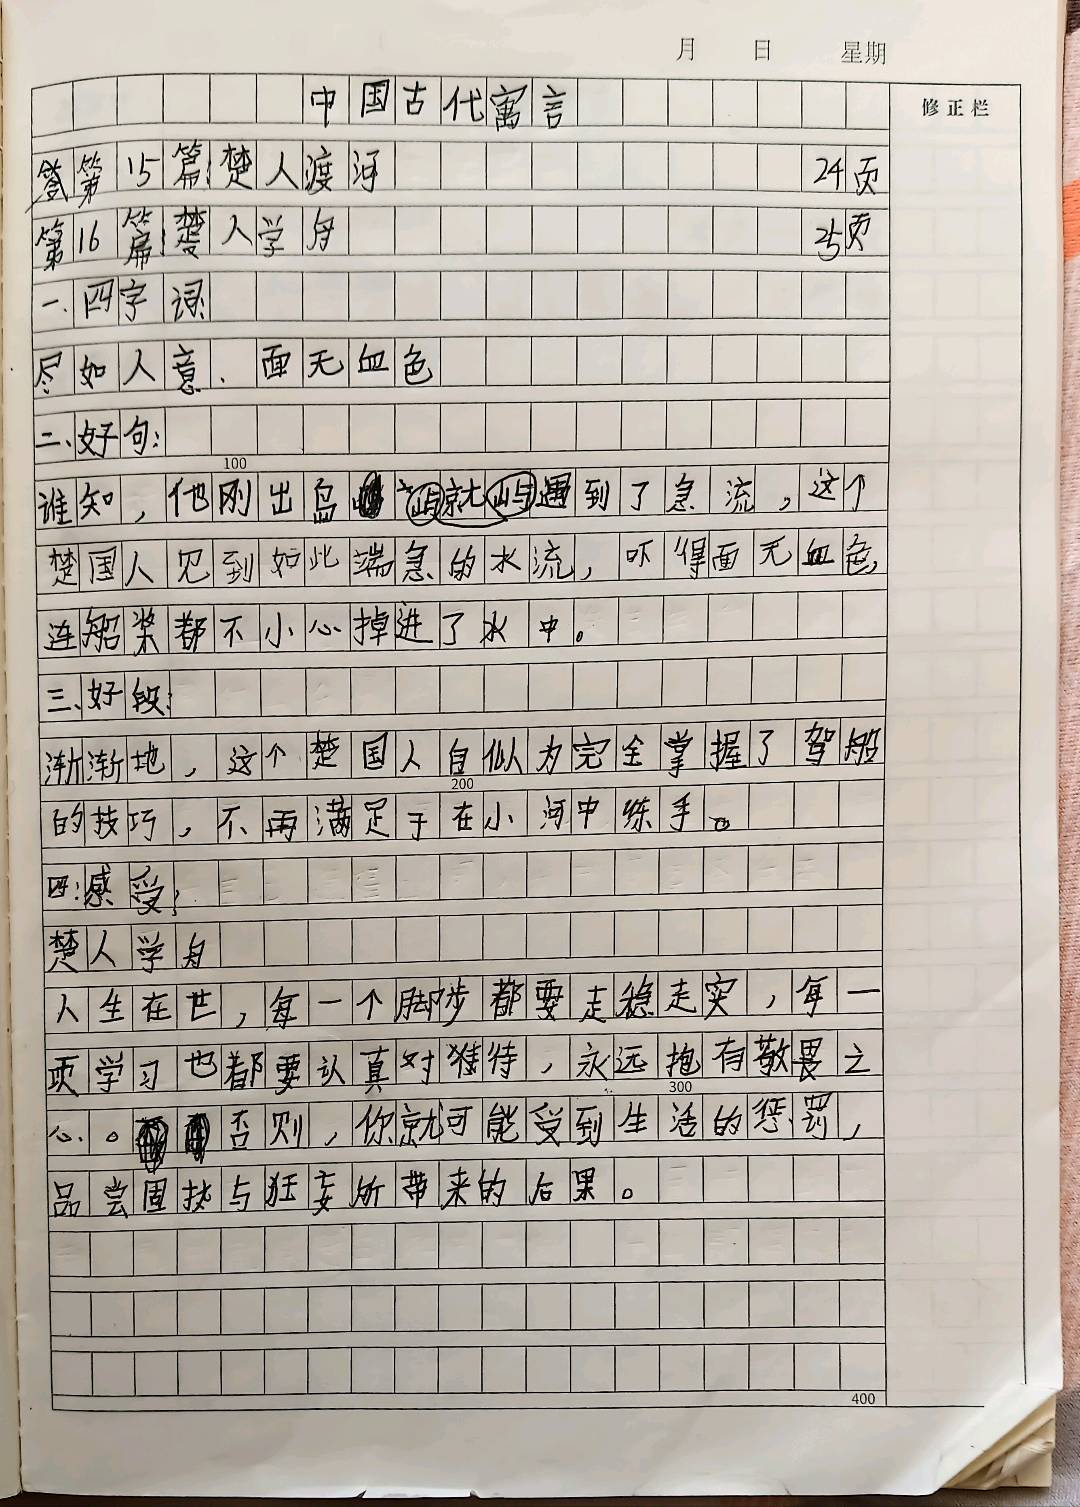 月 日 星期
修正栏
中国古代寓言
第15篇:楚人渡河 24页
第16篇:楚人学舟 25页
一、四字词:
尽如人意、面无血色
二、好句:
100
谁知,他刚出岛就屿遇到了急流,这个
楚国人见到如此湍急的水流,吓得面无血色,
连船桨都不小心掉进了水中。
三、好段:
渐渐地,这个楚国人自似为完全掌握了驾船
200
的技巧,不再满足于在小河中练手。
四:感受:
楚人学舟
人生在世,每一个脚步都要走稳走实,每一
项学习也都要认真对待,永远抱有敬畏之
300
心。否则,你就可能受到生活的惩罚,
品尝固执与狂妄所带来的后果。
400